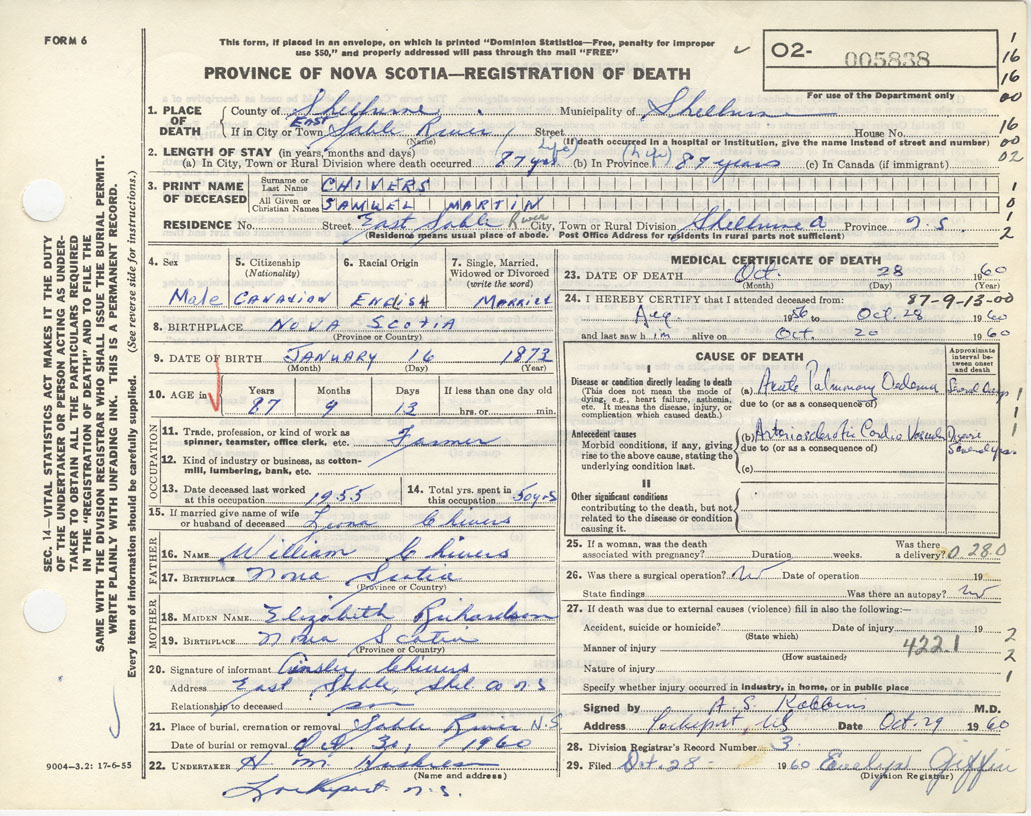 FORM 6
This form, if placed in an envelope, on which is printed "Dominion Statistics—Free, penalty for improper
use $50," and properly addressed will pass through the mail "FREE"
PROVINCE OF NOVA SCOTIA—REGISTRATION OF DEATH
02- 005838
For use of the Department only
1
16
16
00
16
00
02
1
0
1
2
1. PLACE OF DEATH
County of Shelburne Municipality of Shelburne
If in City or Town East Sable River Street House No.
(Name) (If death occurred in a hospital or institution, give the name instead of street and number)
2. LENGTH OF STAY (in years, months and days)
(a) In City, Town or Rural Division where death occurred 87 yrs (life) (b) In Province (life) 87 years (c) In Canada (if immigrant)
3. PRINT NAME OF DECEASED
Surname or Last Name CHIVERS
All Given or Christian Names SAMUEL MARTIN
RESIDENCE No. Street East Sable River City, Town or Rural Division Shelburne Co Province N.S.
(Residence means usual place of abode. Post Office Address for residents in rural parts not sufficient)
4. Sex Male
5. Citizenship (Nationality) Canadian
6. Racial Origin English
7. Single, Married, Widowed or Divorced (write the word) Married
8. BIRTHPLACE Nova Scotia
(Province or Country)
9. DATE OF BIRTH January 16 1873
(Month) (Day) (Year)
10. AGE in Years 87 Months 9 Days 13 If less than one day old hrs. or min.
OCCUPATION
11. Trade, profession, or kind of work as spinner, teamster, office clerk, etc. Farmer
12. Kind of industry or business, as cotton-mill, lumbering, bank, etc.
13. Date deceased last worked at this occupation 1955
14. Total yrs. spent in this occupation 50 yrs
15. If married give name of wife or husband of deceased Chivers
FATHER
16. NAME William Chivers
17. BIRTHPLACE Nova Scotia
(Province or Country)
MOTHER
18. MAIDEN NAME Elizabeth Richardson
19. BIRTHPLACE Nova Scotia
(Province or Country)
20. Signature of informant Ainsley Chivers
Address East Sable, Shel Co N S
Relationship to deceased son
21. Place of burial, cremation or removal Sable River N.S
Date of burial or removal Oct. 30, 1960
22. UNDERTAKER H M
(Name and address)
Lockeport N.S.
MEDICAL CERTIFICATE OF DEATH
23. DATE OF DEATH Oct. 28 1960
(Month) (Day) (Year)
87-9-13-00
24. I HEREBY CERTIFY that I attended deceased from:
Aug. 1956 to Oct. 28 1960
and last saw him alive on Oct. 20 1960
CAUSE OF DEATH
Approximate interval between onset and death
I
Disease or condition directly leading to death
(This does not mean the mode of dying, e.g., heart failure, asthenia, etc. It means the disease, injury, or complication which caused death.)
(a) Acute Pulmonary Oedema Several Days
due to (or as a consequence of)
Antecedent causes
Morbid conditions, if any, giving rise to the above cause, stating the underlying condition last.
(b) Arteriosclerotic Cardio Vascular Disease Several yrs.
due to (or as a consequence of)
(c)
1
1
1
II
Other significant conditions contributing to the death, but not related to the disease or condition causing it.
25. If a woman, was the death associated with pregnancy? Duration weeks. Was there a delivery? 0 280
26. Was there a surgical operation? no Date of operation 19
State findings Was there an autopsy? no
27. If death was due to external causes (violence) fill in also the following:—
Accident, suicide or homicide? Date of injury 19
(State which)
Manner of injury 422.1
(How sustained)
Nature of injury
2
2
1
Specify whether injury occurred in industry, in home, or in public place
Signed by A. S. Robbins M.D.
Address Lockeport, NS Date Oct. 29 1960
28. Division Registrar's Record Number 3
29. Filed Oct. 28 1960 Evelyn Giffin
(Division Registrar)
SEC. 14—VITAL STATISTICS ACT MAKES IT THE DUTY
OF THE UNDERTAKER OR PERSON ACTING AS UNDER-
TAKER TO OBTAIN ALL THE PARTICULARS REQUIRED
IN THE "REGISTRATION OF DEATH" AND TO FILE THE
SAME WITH THE DIVISION REGISTRAR WHO SHALL ISSUE THE BURIAL PERMIT.
WRITE PLAINLY WITH UNFADING INK. THIS IS A PERMANENT RECORD.
Every item of information should be carefully supplied. (See reverse side for instructions.)
9004-3.2: 17-6-55